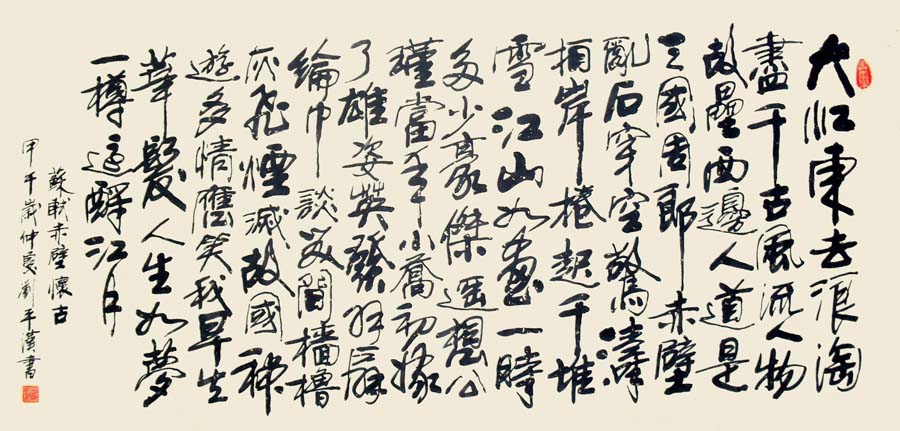 大江東去浪淘
盡千古風流人物
故壘西邊人道是
三國周郎赤壁
亂石穿空驚濤
拍岸捲起千堆
雪江山如畫一時
多少豪傑遥想公
瑾當年小喬初嫁
了雄姿英發羽扇
綸巾談笑間檣櫓
灰飛煙滅故國神
遊多情應笑我早生
華髮人生如夢
一樽還酹江月
蘇軾赤壁懷古
甲午歲仲夏劉平漢書